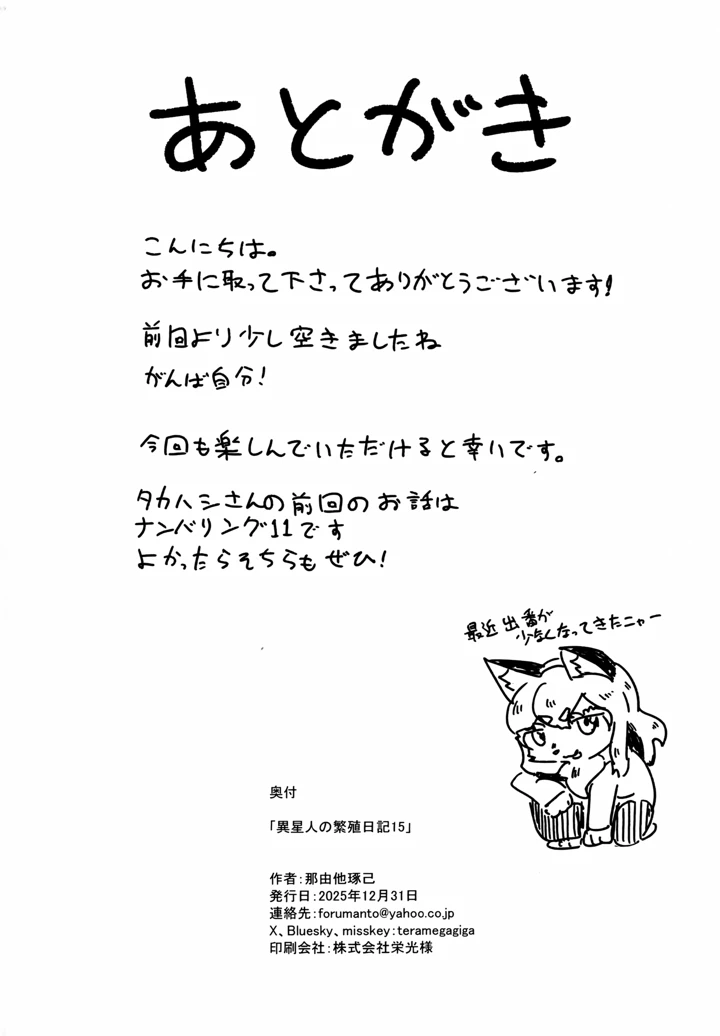 あとがき
こんにちは。
お手に取って下さってありがとうございます!
前回より少し空きましたね
がんば自分!
今回も楽しんでいただけると幸いです。
タカハシさんの前回のお話は
ナンバリング11です
よかったらそちらもぜひ!
最近出番が
少なくなってきたニャー
奥付
「異星人の繁殖日記15」
作者:那由他琢己
発行日:2025年12月31日
連絡先:forumanto@yahoo.co.jp
X、Bluesky、misskey:teramegagiga
印刷会社:株式会社栄光様